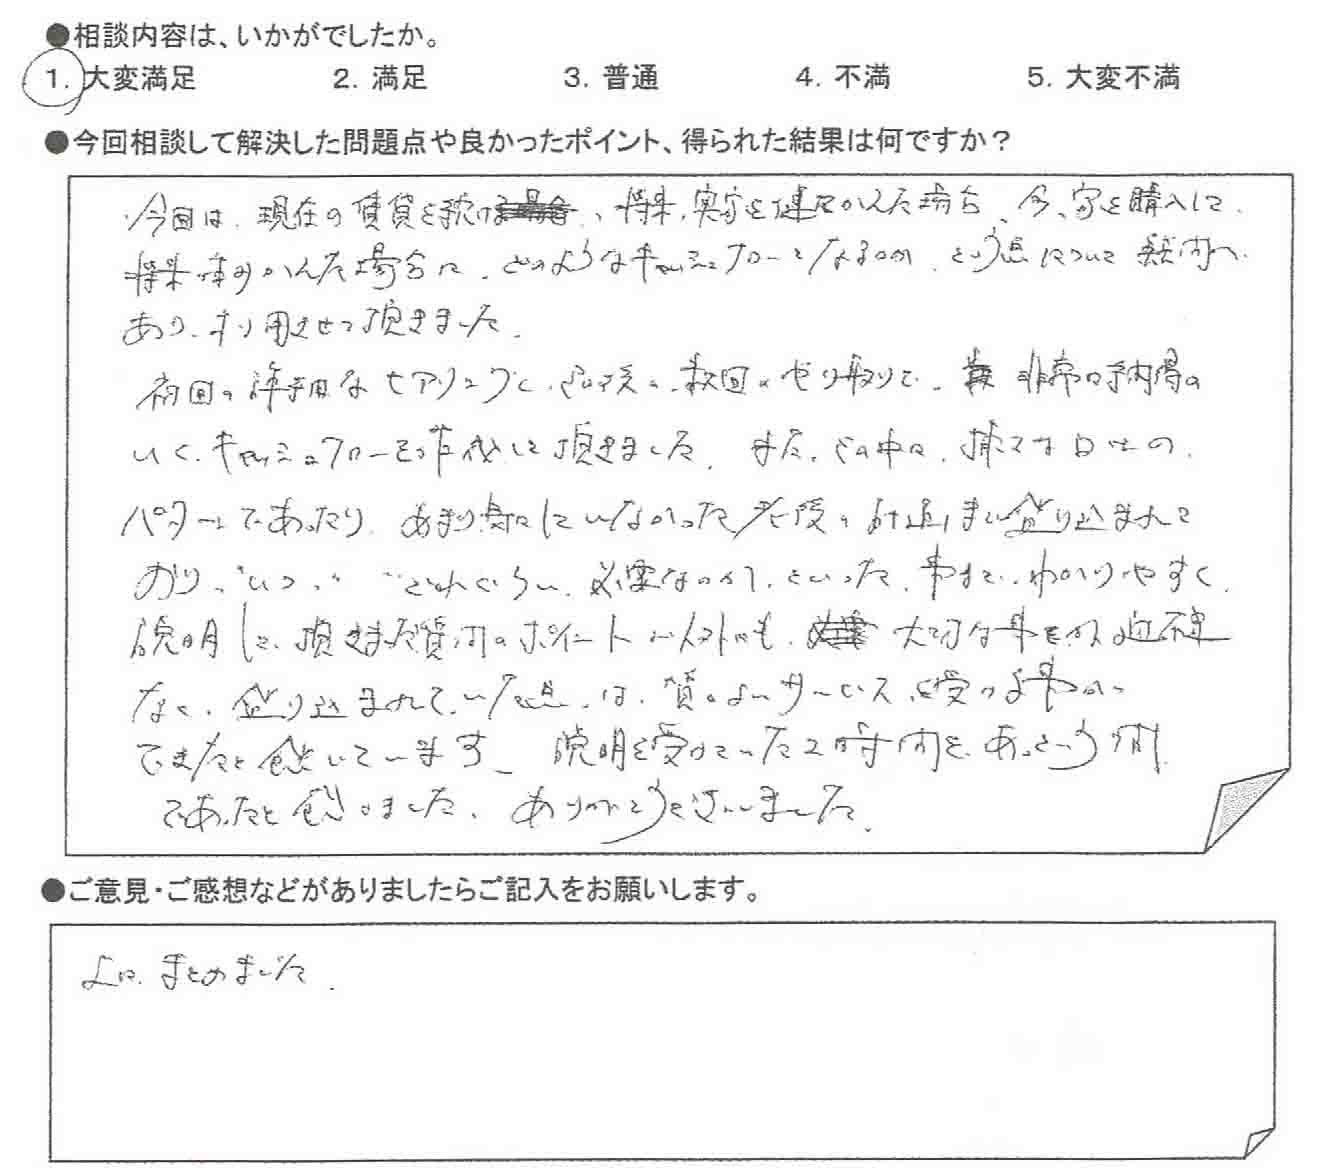 ●相談内容は、いかがでしたか。
1. 大変満足 2. 満足 3. 普通 4. 不満 5. 大変不満
●今回相談して解決した問題点や良かったポイント、得られた結果は何ですか？
今回は、現在の賃貸を続け、将来、実家を建てかえた場合、今、家を購入して、
将来住みかえた場合に、どのようなキャッシュフローとなるのか、という点について疑問が
あり、利用させて頂きました。
初回の詳細なヒアリングと、その後の、数回のやり取りで、非常に納得の
いく、キャッシュフローを作成して頂きました。また、その中に、様々な
パターンであったり、あまり気にしていなかった老後の計画まで盛り込まれて
おり、"いつ"、"どれぐらい"必要なのか、といった、事まで、わかりやすく、
説明して、頂きました。質問のポイント以外にも、大切な事を
なく、盛り込まれていた点は、質のよいサービスを受ける事が
できたと感じています。説明を受けていた2時間を、あっという間
であったと感じました。ありがとうございました。
●ご意見・ご感想などがありましたらご記入をお願いします。
上に、まとめました。